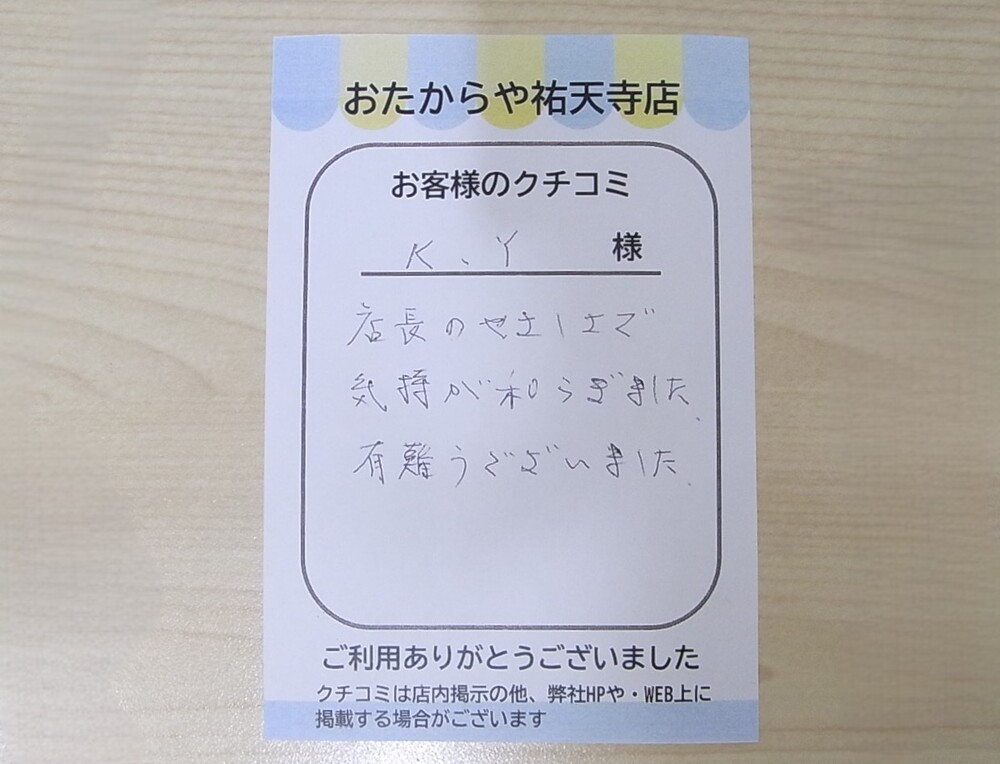 おたからや祐天寺店
お客様のクチコミ
K、Y 様
店長のやさしさで
気持が和らぎました、
有難うございました、
ご利用ありがとうございました
クチコミは店内掲示の他、弊社HPや・WEB上に
掲載する場合がございます